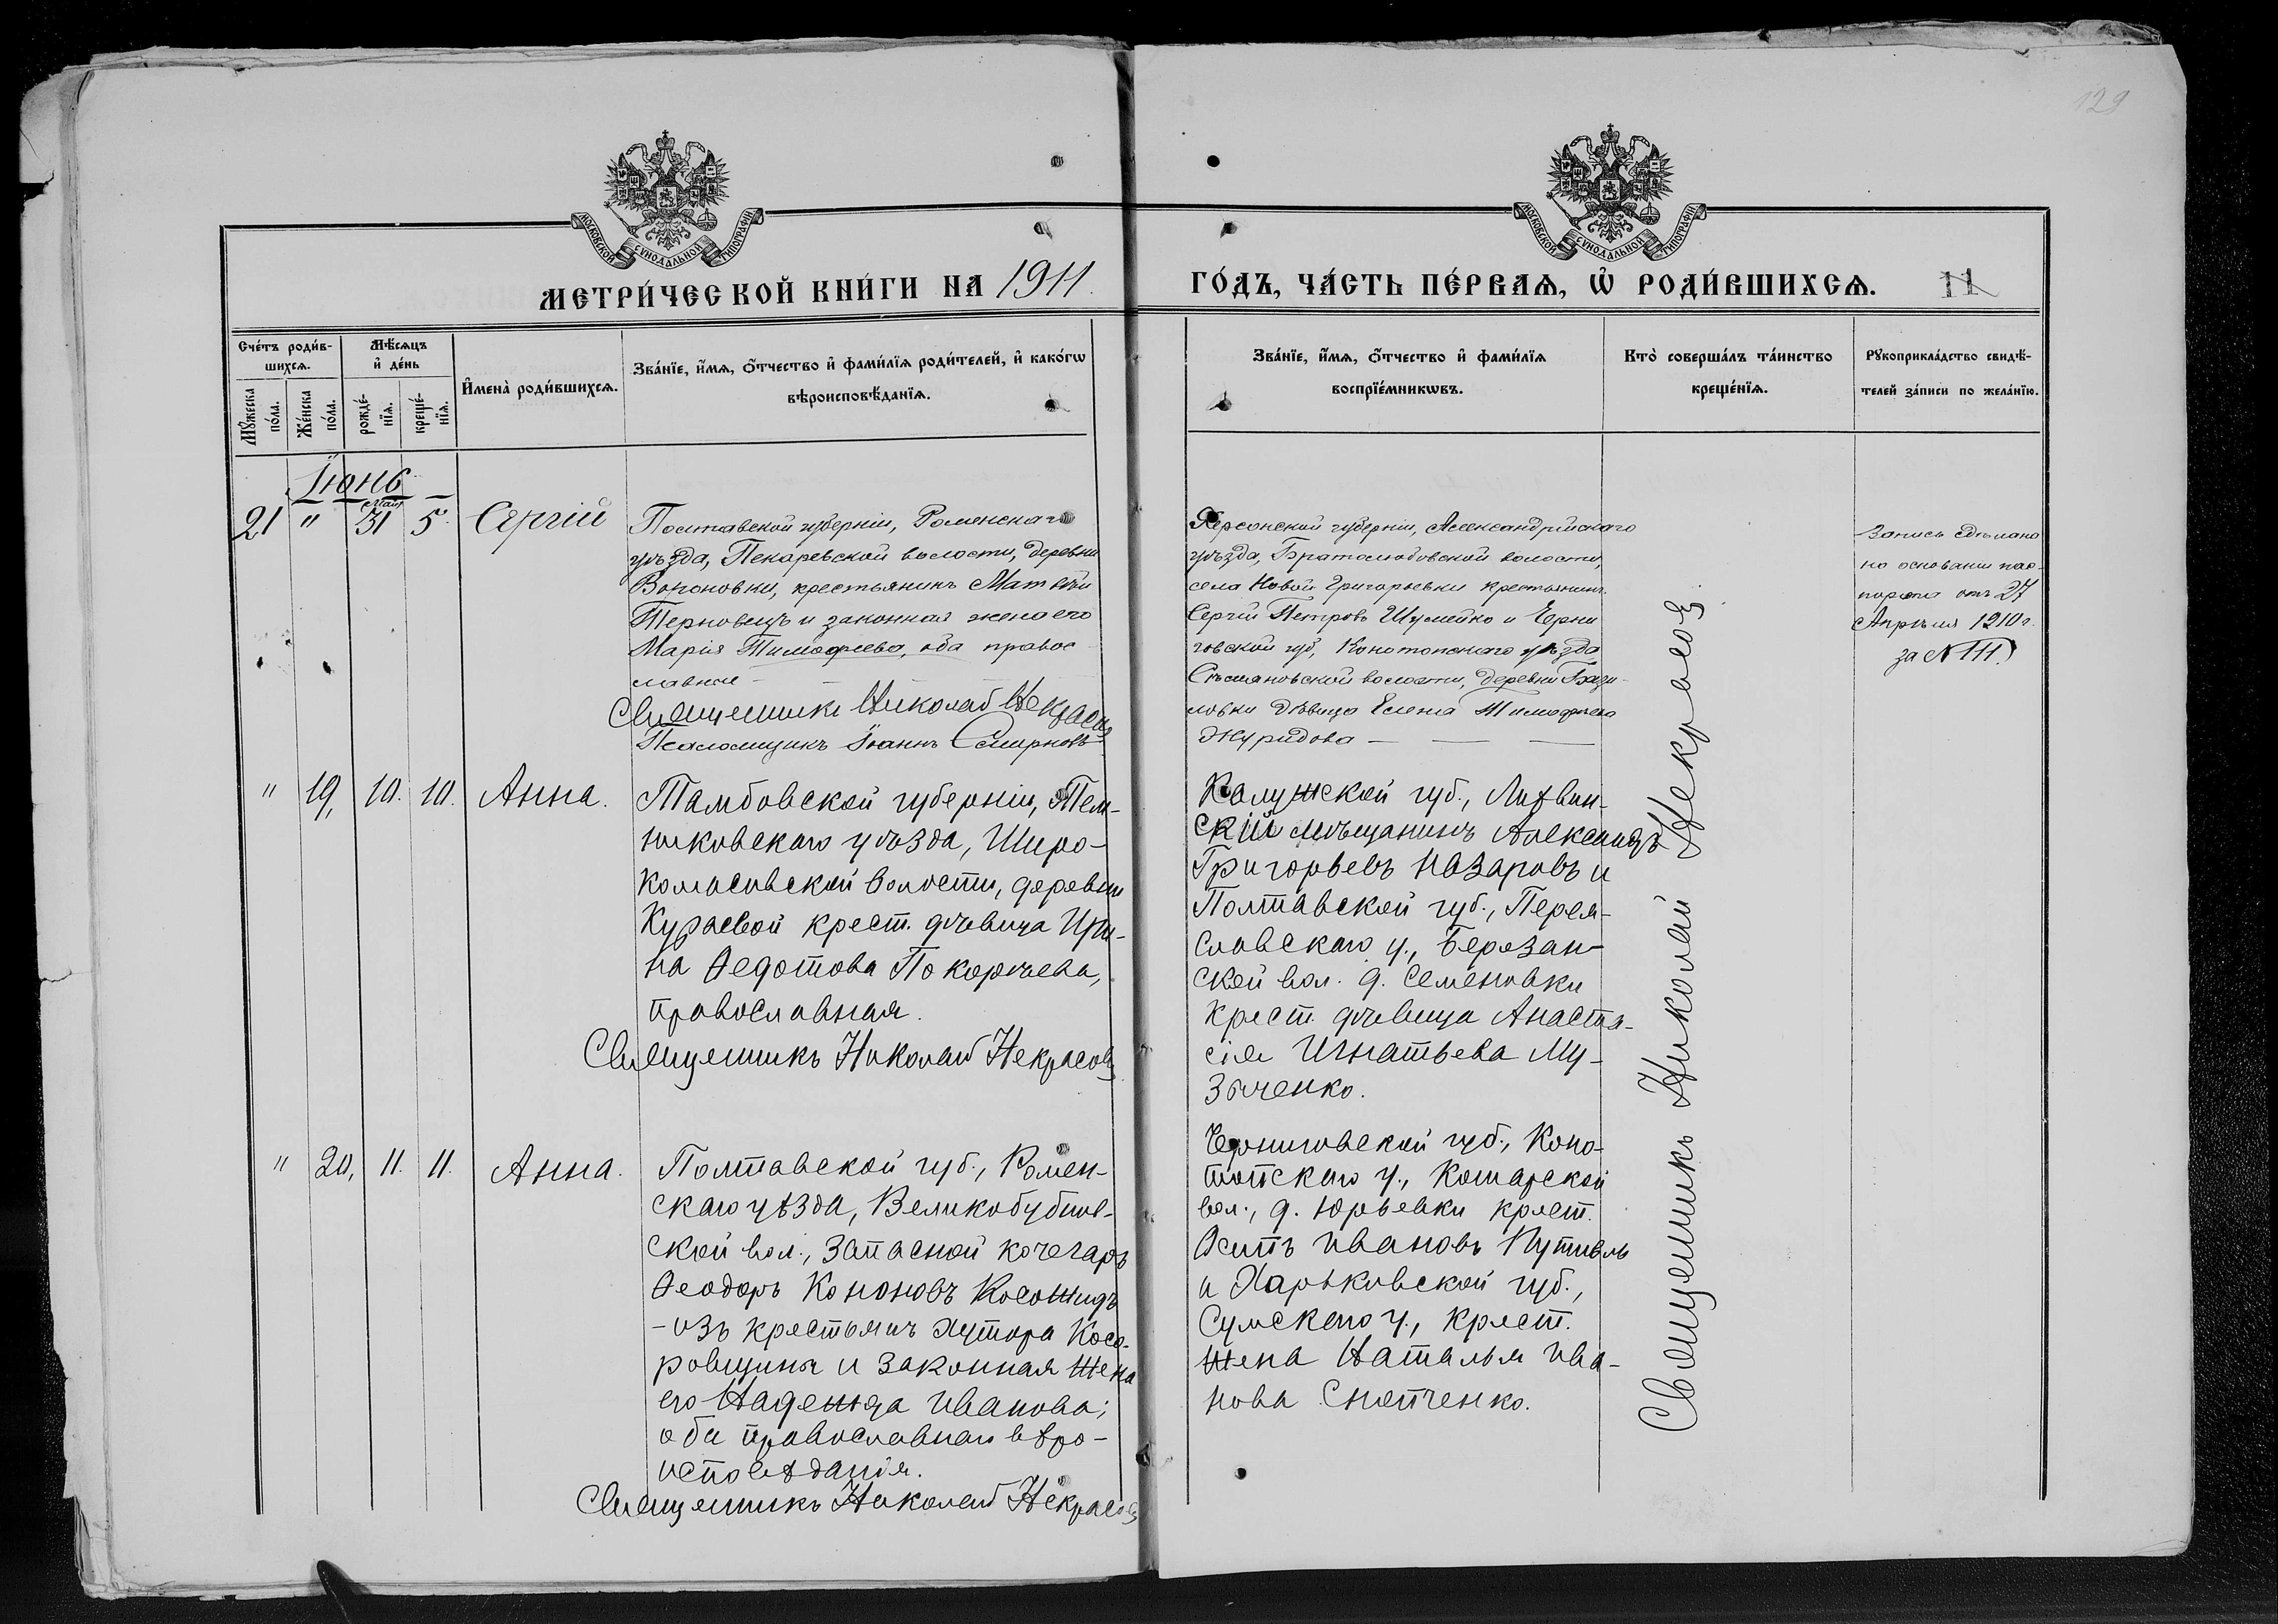 129
МОСКОВСКОЙ СѴНОДАЛЬНОЙ ТИПОГРАФІИ
МОСКОВСКОЙ СѴНОДАЛЬНОЙ ТИПОГРАФІИ
МЕТРИ́ЧЕСКОЙ КНИ́ГИ НА 1911.
ГО́ДЪ, ЧА́СТЬ ПЕ́РВАѦ, Ѡ҆ РОДИ́ВШИХСѦ. 11
Сче́тъ роди́в-
шихсѧ.
Мꙋ́жеска по́ла.
Же́нска по́ла.
Мѣ́сѧцъ
и҆ де́нь
рожде́-
нїѧ.
креще́-
нїѧ.
И҆мена̀ роди́вшихсѧ.
Зва́нїе, и҆́мѧ, ѻ҆́тчество и҆ фами́лїѧ роди́телей, и҆ како́гѡ
вѣроисповѣ́данїѧ.
Зва́нїе, и҆́мѧ, ѻ҆́тчество и҆ фами́лїѧ
воспрїе́мникѡвъ.
Кто̀ соверша́лъ та́инство
креще́нїѧ.
Рꙋкоприкла́дство свидѣ́-
телей за́писи по жела́нїю.
Іюнь
Май
21 " 31 5. Сергій
Полтавской губерніи, Роменскаго
уѣзда, Пекаревской волости, деревни
Вороновки, крестьянинъ Матвѣй
Терновецъ и законная жена его
Марія Тимофеева, оба правос-
лавные
Священникъ Николай Некрасовъ
Псаломщикъ Іоаннъ Смирновъ
Херсонской губерніи, Александрійскаго
уѣзда, Братолюбовской волости,
села Новой Григорьевки крестьянинъ
Сергій Петровъ Шумейко и Черни
говской губ, Конотопскаго уѣзда
волости, деревни
ловки дѣвица Елена Тимофеева
Журидова
Запись сдѣлана
на основаніи пас-
порта отъ 27
Апрѣля 1910 г.
за № 111.
" 19, 10. 10. Анна.
Тамбовской губерніи, Тем-
никовскаго уѣзда, Широ-
комасовской волости, деревни
Кураевой крест. дѣвица Ири-
на Ѳедотова Покорѣева,
православная.
Священникъ Николай Некрасовъ
Калужской губ., Лихвин-
скій мѣщанинъ Александръ
Григорьевъ Назаровъ и
Полтавской губ., Перея-
славскаго у., Березан-
ской вол. д. Семеновки
крест. дѣвица Анаста-
сія Игнатьева Му-
зыченко.
" 20, 11. 11. Анна.
Полтавской губ., Ромен-
скаго уѣзда, Великобубнов-
ской вол., запасной кочегаръ
Ѳеодоръ Кононовъ Косожидъ
- изъ крестьянъ хутора Косо-
ровщина и законная жена
его Надежда Иванова;
оба православнаго вѣро-
исповѣданія.
Священникъ Николай Некрасовъ
Черниговской губ., Коно-
топскаго у., Кошарской
вол., д. Юрьевки крест.
Осипъ Ивановъ Путивль
и Харьковской губ.,
Сумскаго у., крест.
жена Наталья Ива-
нова Снопченко.
Священникъ Николай Некрасовъ.